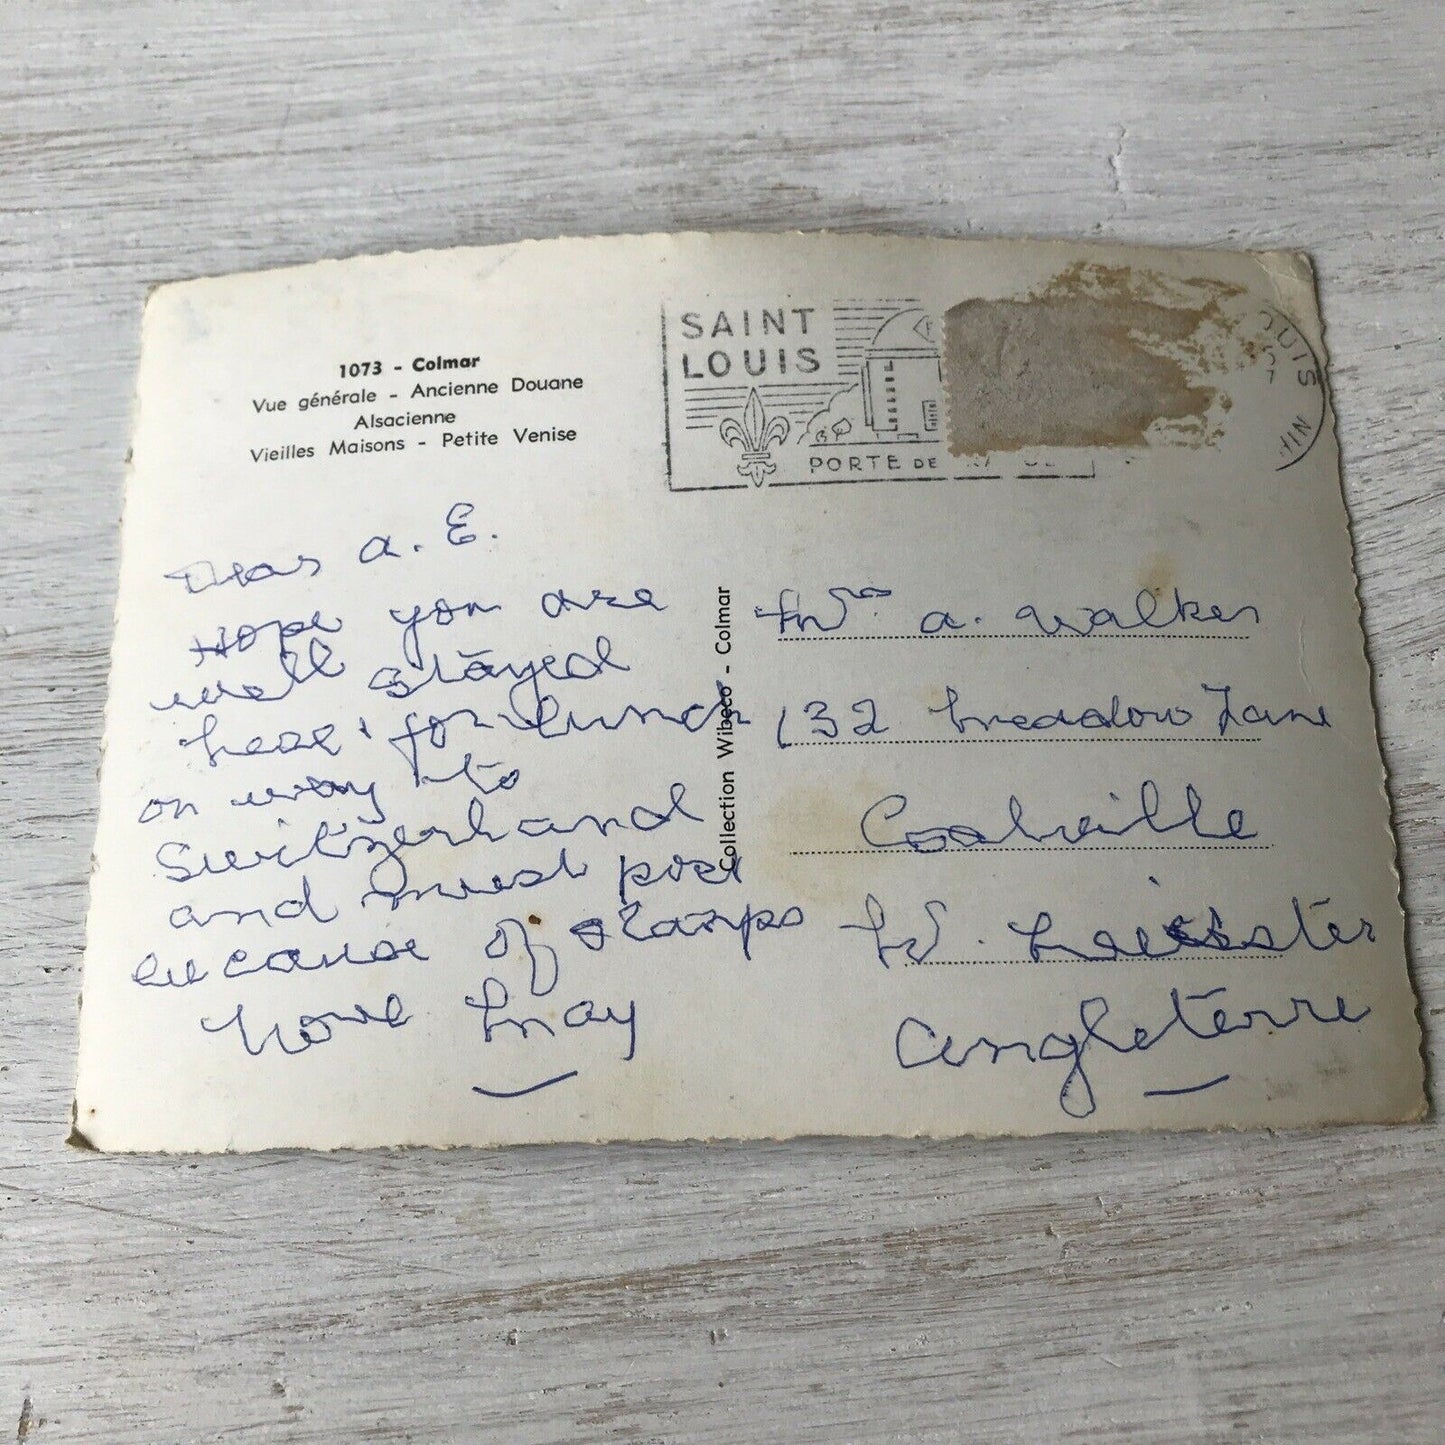 1073 - Colmar
Vue générale - Ancienne Douane
Alsacienne
Vieilles Maisons - Petite Venise
SAINT
LOUIS
PORTE DE
OUIS
Collection Wibeco - Colmar
Dear a. E.
Hope you are
well stayed
here for lunch
on way to
Switzerland
and must post
because of stamps
Love May
Mrs a. Walker
132 Meadow Lane
Coalville
Nr. Leicester
Angleterre